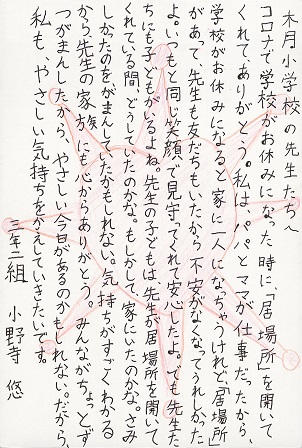 木月小学校の先生たちへ
コロナで学校がお休みになった時に「居場所」を開いて
くれてありがとう。私は、パパとママが仕事だったから、
学校がお休みになると家に一人になちゃうけれど、「居場所」
があって、先生も友だちもいたから不安がなくなってうれしかった
よ。いつもと同じ笑顔で見守ってくれて安心したよ。でも先生た
ちにも子どもがいるよね。先生の子どもは、先生が居場所を開いて
くれている間、どうしていたのかな。もしかして、家にいたのかな。さみ
しかったのをがまんしていたかもしれない。気持ちがすごくわかる
から先生の家族にも心からありがとう。みんながちょっとず
つがまんしたから、やさしい今日があるのかもしれない。だから、
私も、やさしい気持ちをかえしていきたいです。
三年二組　小野寺　悠